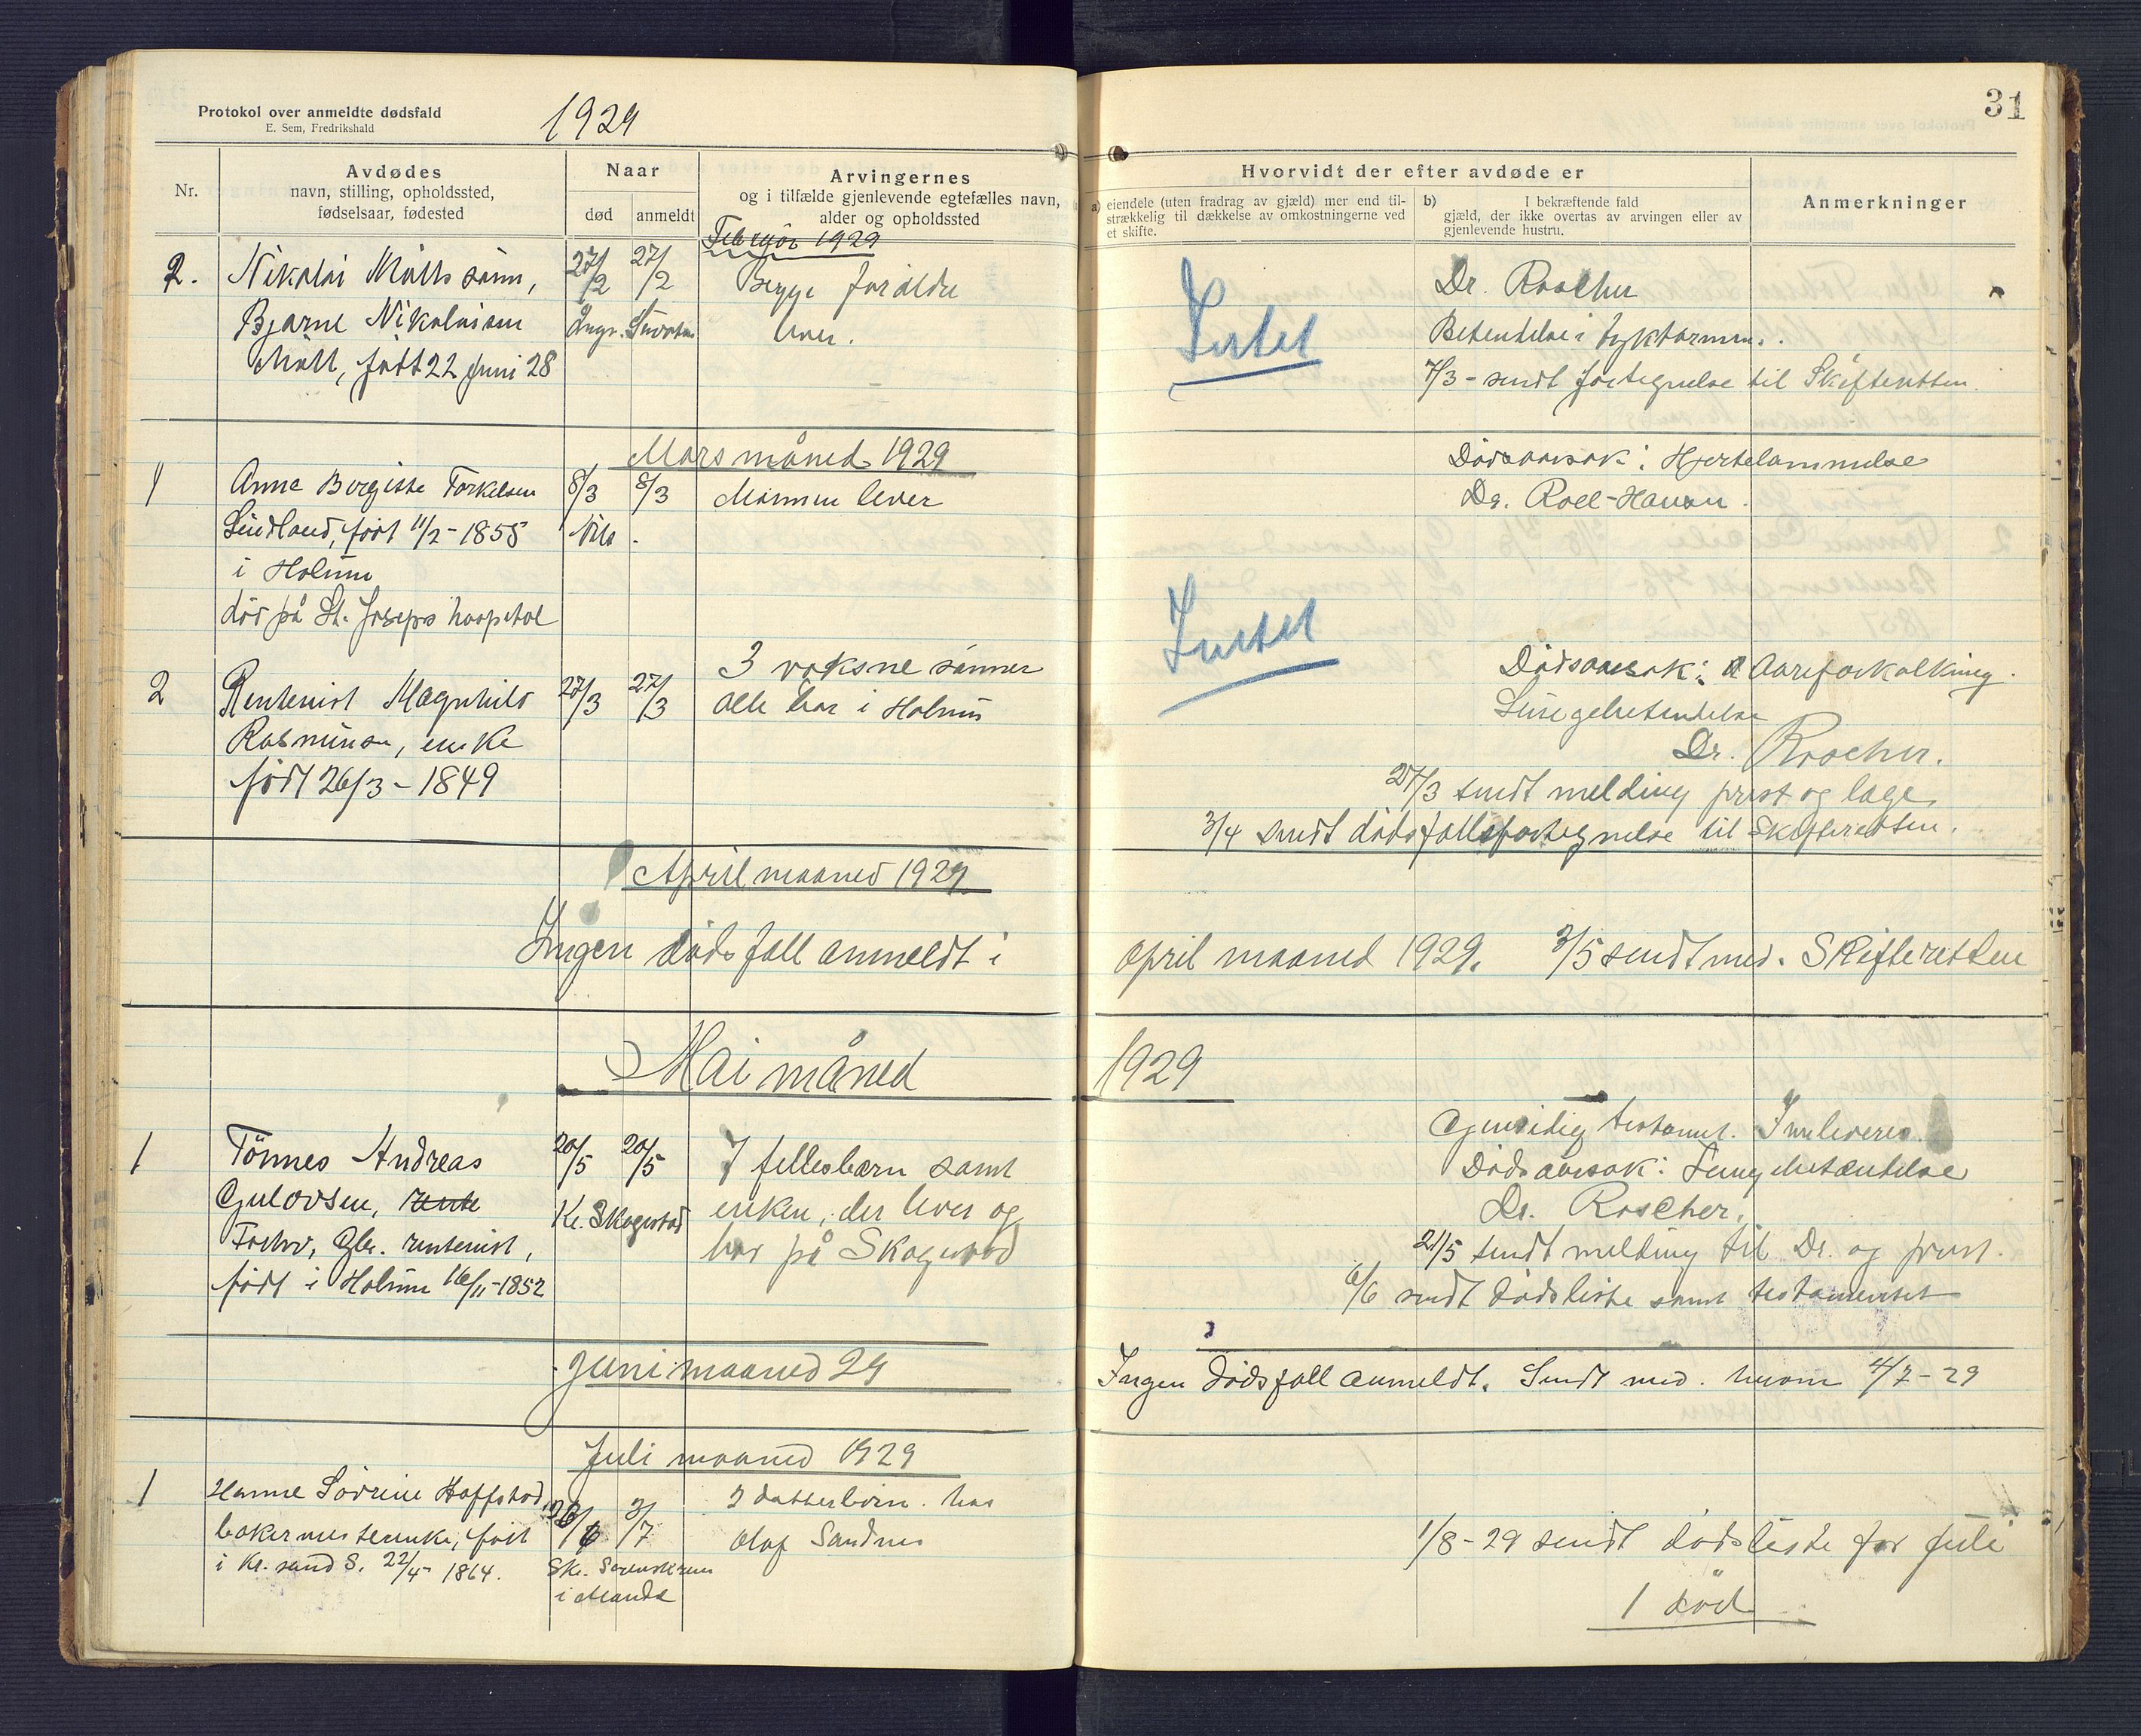 Protokol over anmeldte dødsfald
E. Sem, Fredrikshald
1929
31
Nr.
Avdødes
navn, stilling, opholdssted,
fødselsaar, fødested
Naar
død
anmeldt
Arvingernes
og i tilfælde gjenlevende egtefælles navn,
alder og opholdssted
Hvorvidt der efter avdøde er
a) eiendele (uten fradrag av gjæld) mer end til-
strækkelig til dækkelse av omkostningerne ved
et skifte.
b) I bekræftende fald
gjæld, der ikke overtas av arvingen eller av
gjenlevende hustru.
Anmerkninger
Februar 1929
2. Nikolai Mølls sønn,
Bjarne Nikolaisen
Møll, født 22 Juni 28
27/2 27/2
Begge forældre
lever.
Intet
Dr. Roscher
Betendelse i tyktarmen.
7/3 - sendt fortegnelse til Skifteretten.
Mars måned 1929
1 Anna Birgitte Torkelsen
Lindland, født 11/2 - 1855
i Holum
død på St. Joseps hospital
8/3 8/3
Nils
Mannen lever
Dødsaarsak: Hjertelammelse
Dr. Roll-Hansen.
Intet
2 Rentenist Magnhild
Rasmussen, enke
født 26/3 - 1849
27/3 27/3
3 voksne sønner
alle bor i Holum
Dødsaarsak: Aareforkalkning.
Lungebetendelse
Dr. Roscher.
27/3 sendt melding prest og læge
3/4 sendt dødsfallsfortegnelse til Skifteretten.
April maaned 1929
Ingen dødsfall anmeldt i
april maaned 1929. 3/5 sendt med. Skifteretten
Mai måned
1929
1 Tönnes Andreas
Gulovsen, rente
Forhv. Gbr. rentenist,
født i Holum 16/11-1852
20/5 20/5
Kr. Skogstad
7 fellesbarn samt
enken, der lever og
bor på Skogstad
Gjensidig testament. Innleveres.
Dødsaarsak: Lungebetændelse
Dr. Roscher.
21/5 sendt melding til Dr. og prest.
6/6 sendt dødsliste samt testamentet
Juni maaned 29
Ingen dødsfall anmeldt. Sendt med. herom 4/7 - 29
Juli maaned 1929
1 Hanne Sørine Hoffstad,
bakermesterenke, født
i Kr.sand S. 22/4 - 1864.
3/7
i Mandal
2 datterbørn. hos
Olaf Sandnes
1/8 - 29 sendt dødsliste for juli
1 død